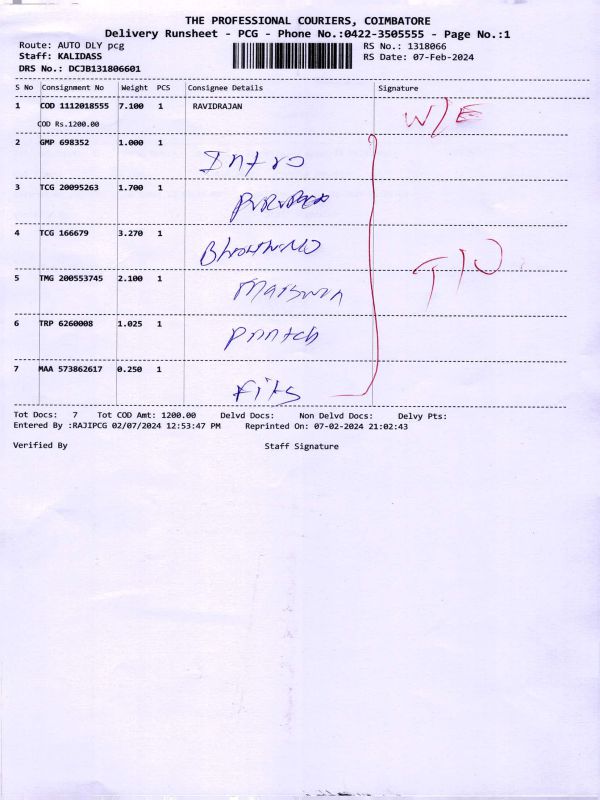 THE PROFESSIONAL COURIERS, COIMBATORE
Delivery Runsheet - PCG - Phone No.:0422-3505555 - Page No.:1
Route: AUTO DLY pcg RS No.: 1318066
Staff: KALIDASS RS Date: 07-Feb-2024
DRS No.: DCJB131806601
S No Consignment No Weight PCS Consignee Details Signature
1 COD 1112018555 7.100 1 RAVIDRAJAN W/E
COD Rs.1200.00
2 GMP 698352 1.000 1
Intro
3 TCG 20095263 1.700 1
4 TCG 166679 3.270 1
5 TMG 200553745 2.100 1
6 TRP 6260008 1.025 1
7 MAA 573862617 0.250 1
Fits
Tot Docs: 7 Tot COD Amt: 1200.00 Delvd Docs: Non Delvd Docs: Delvy Pts:
Entered By :RAJIPCG 02/07/2024 12:53:47 PM Reprinted On: 07-02-2024 21:02:43
Verified By Staff Signature